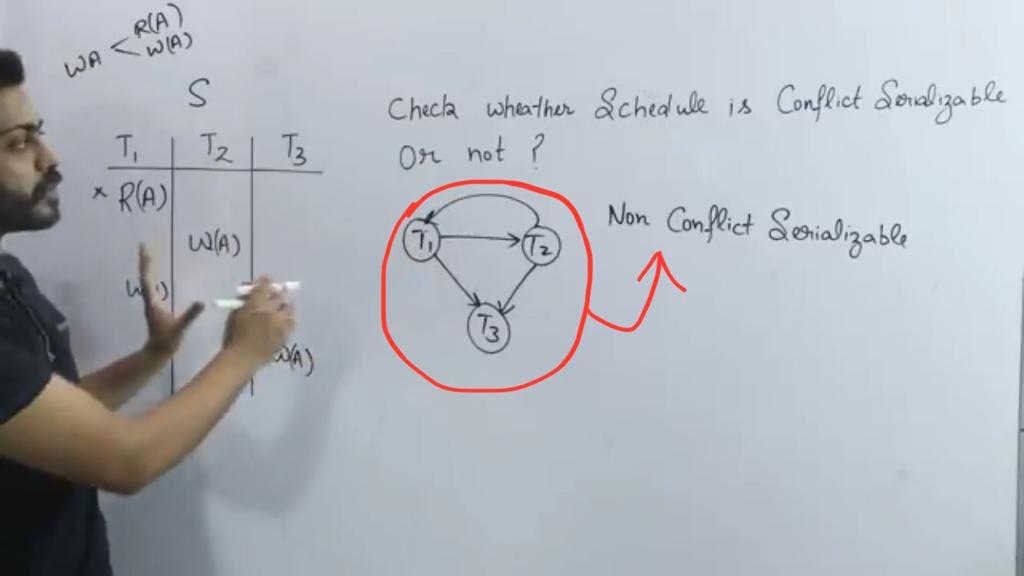 WA
R(A)
W(A)
S
T1 T2 T3
× R(A)
W(A)
W(A)
Check wheather Schedule is Conflict Serializable
Or not ?
T1 T2
T3
Non Conflict Serializable